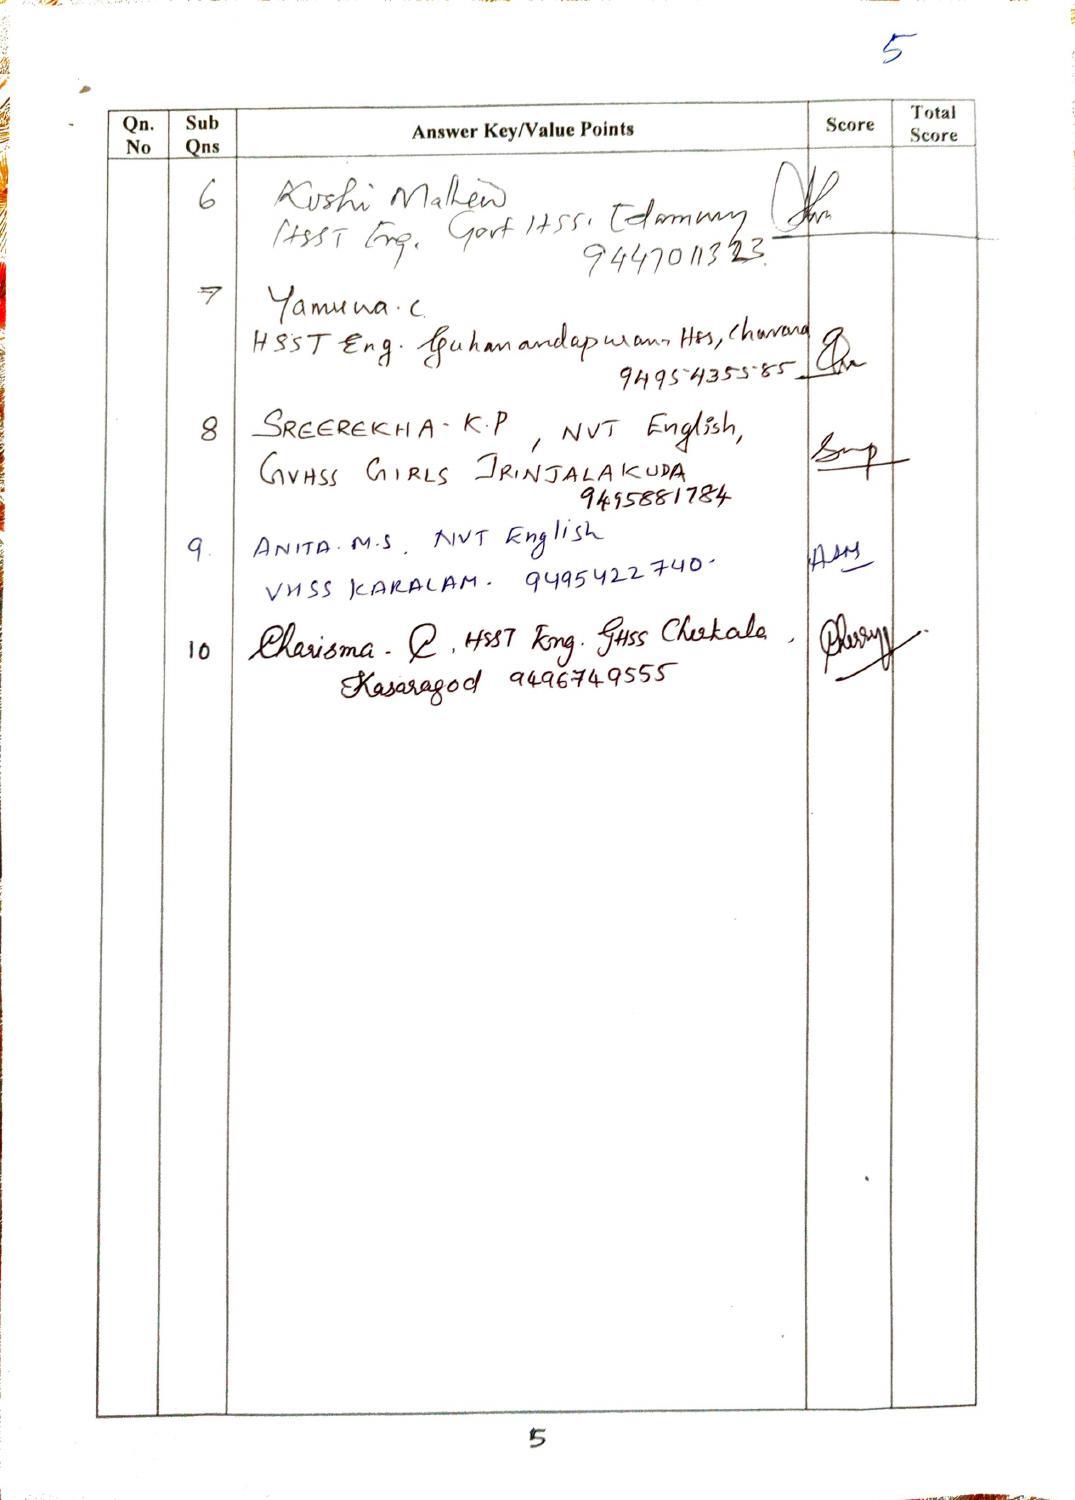 5
Qn. No Sub Qns Answer Key/Value Points Score Total Score
6 Kushi Mathew
HSST Eng. Govt HSS. Edamury
9447011323.
7 Yamuna. C
HSST Eng. Guhanandapuram HSS, Chavara
9495435585
8 SREEREKHA. K.P, NVT English,
GVHSS GIRLS IRINJALAKUDA
9495881784
9. ANITA. M.S, NVT English
VHSS KARALAM. 9495422740.
10 Charisma. C, HSST Eng. GHSS Cherkala,
Kasaragod 9496749555
5